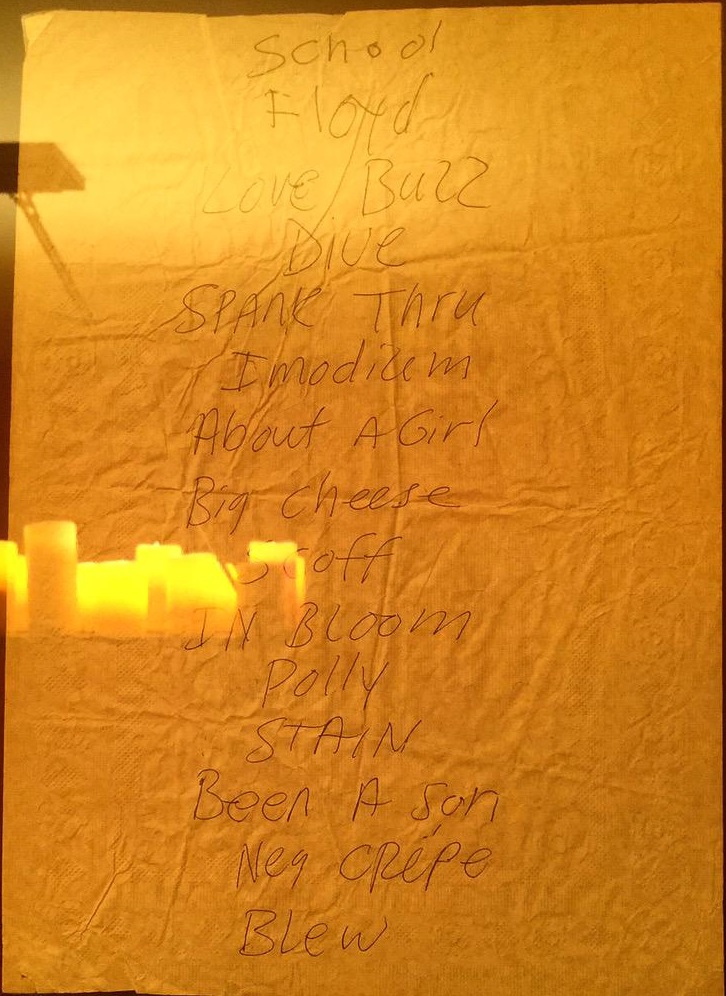 School
Floyd
Love Buzz
Dive
SPANK Thru
Imodium
About A Girl
Big Cheese
Scoff
IN BLOOM
Polly
STAIN
Been A Son
Neg CRéPe
Blew